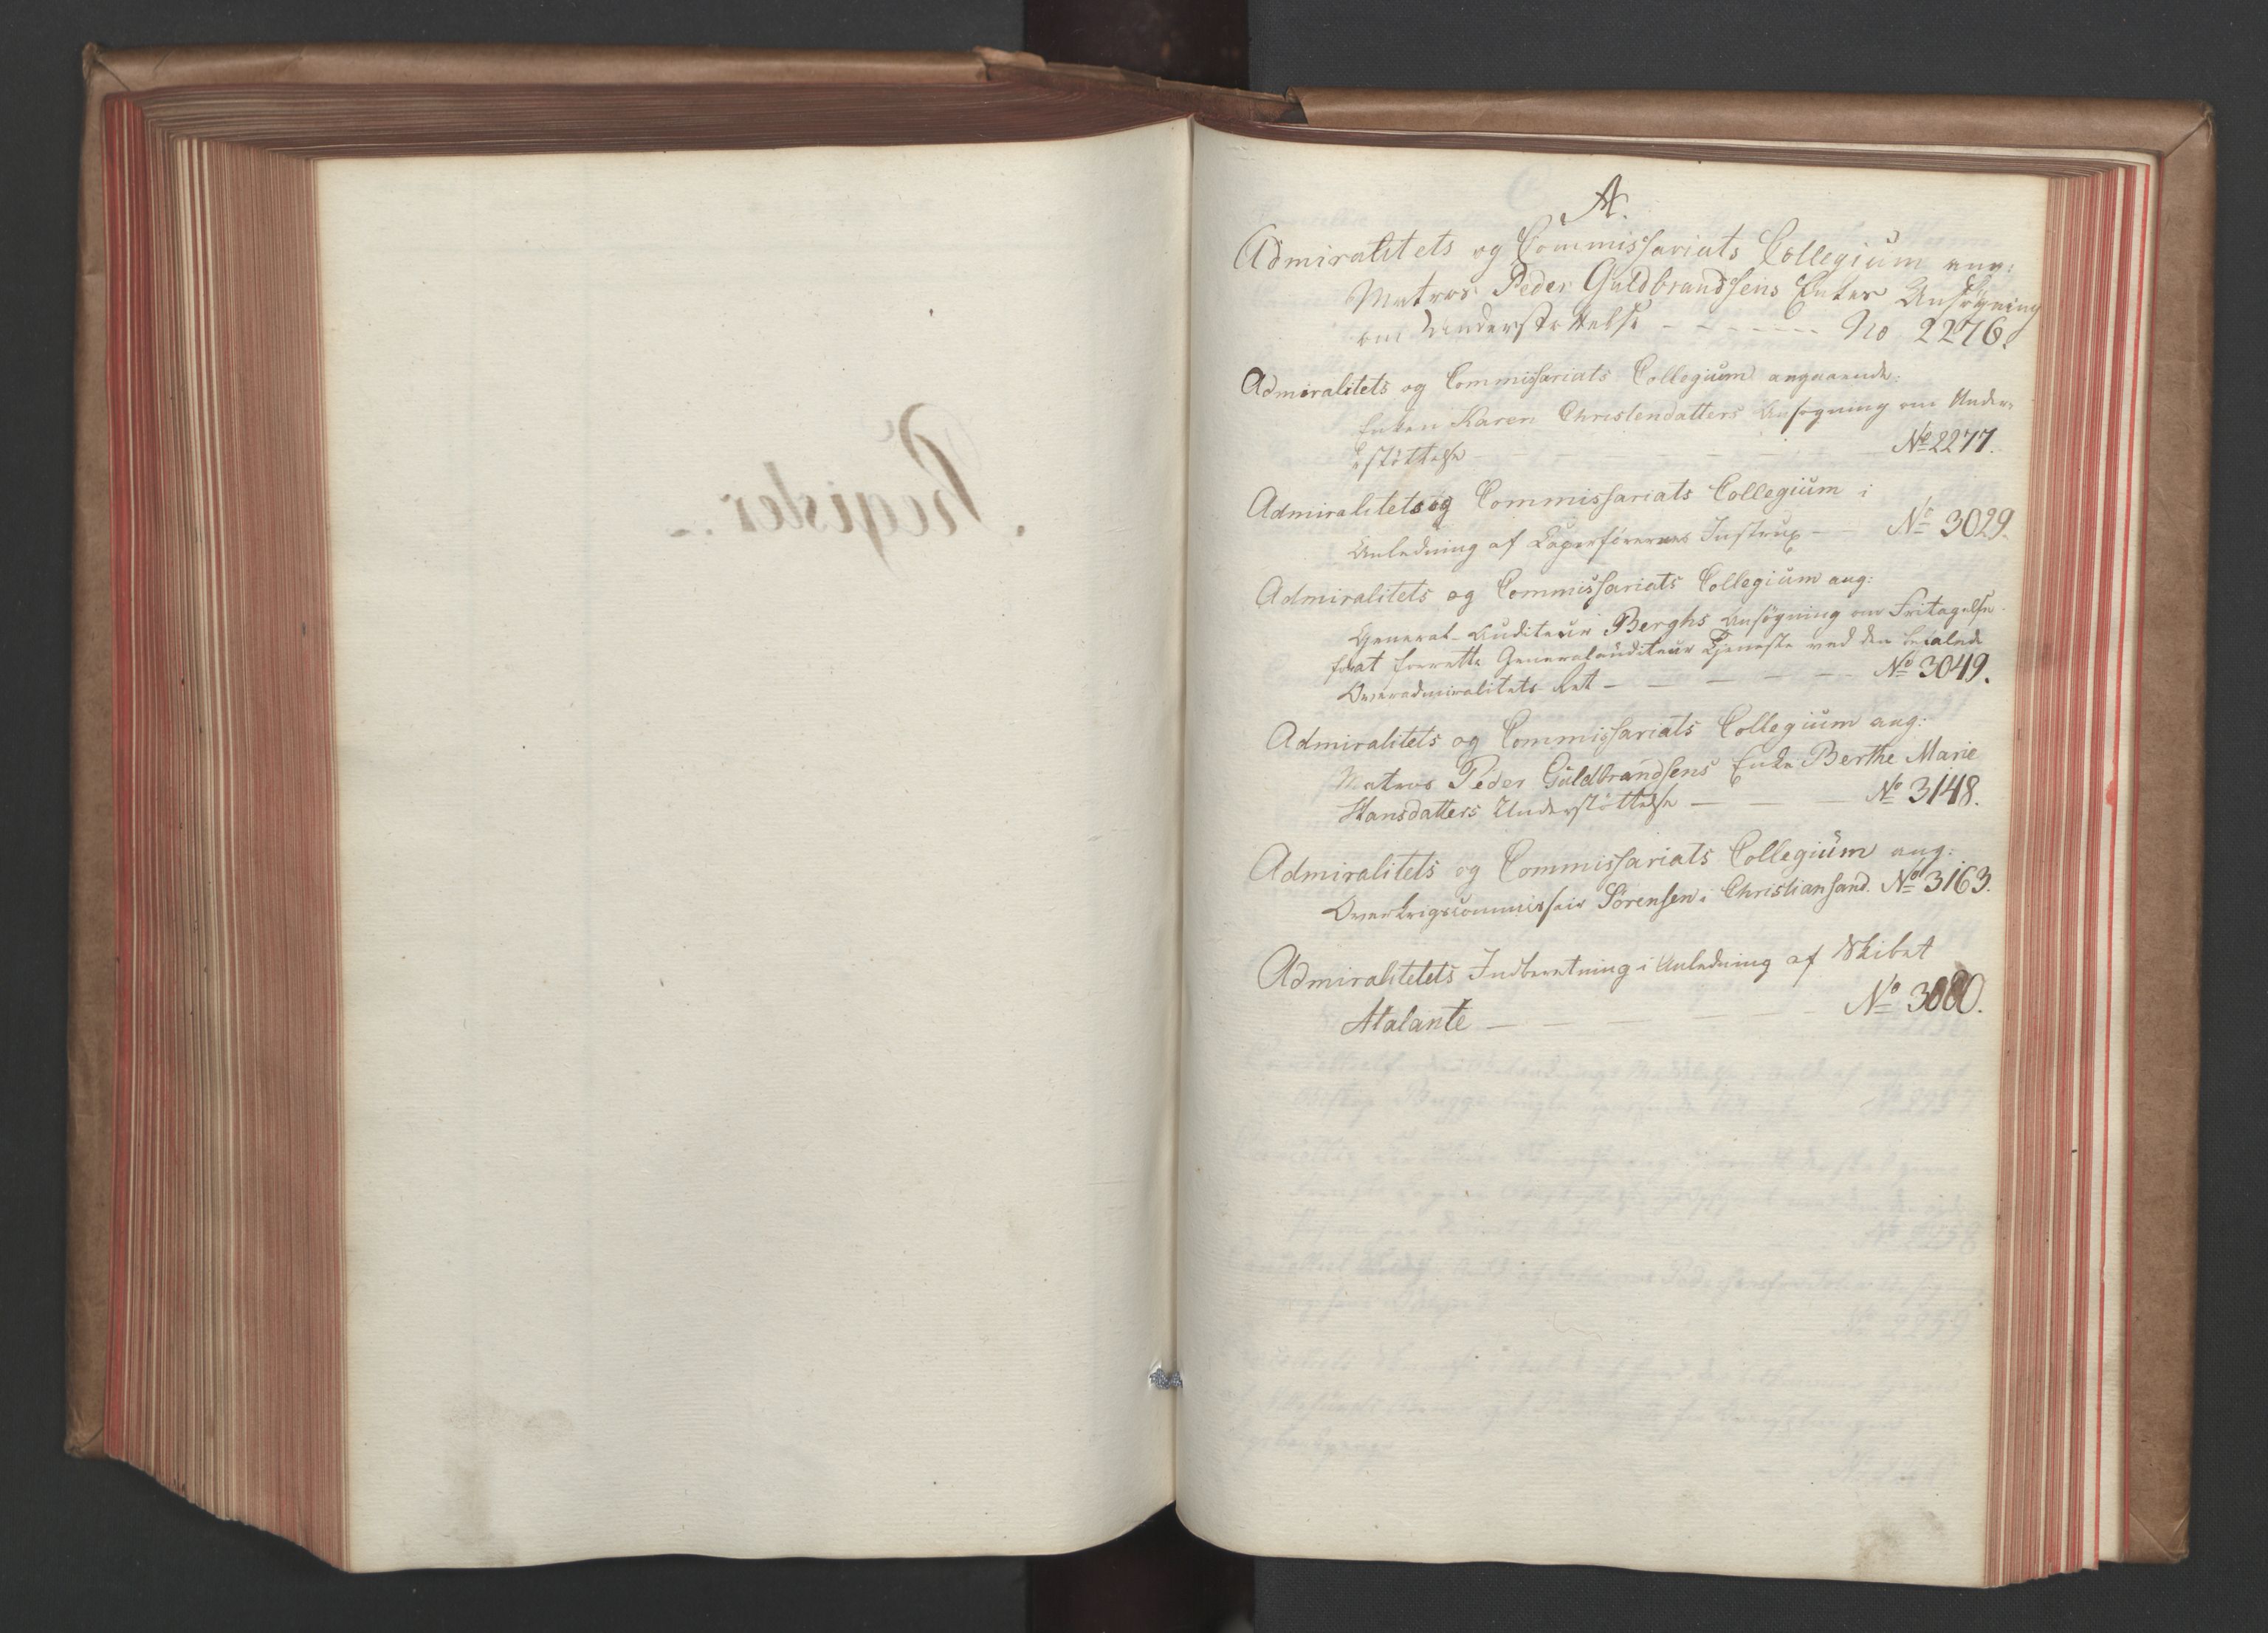 Register.
A.
Admiralitets og Commissariats Collegium ang:
Matros Peder Guldbrandsens Enkes Ansøgning
om Understøttelse - - - - - - No 2276.
Admiralitets og Commissariats Collegium angaaende:
Enken Karen Christendatters Ansøgning om Under-
støttelse - - - - - - No 2277.
Admiralitets og Commissariats Collegium i
Anledning af Kaperførernes Instrux - No 3029.
Admiralitets og Commissariats Collegium ang:
General-Auditeur Berghs Ansøgning om Fritagelse
for at forrette Generalauditeur Tjeneste ved den
Overadmiralitets Ret - - - - - No 3049.
Admiralitets og Commissariats Collegium ang:
Matros Peder Guldbrandsens Enke Berthe Marie
Hansdatters Understøttelse - - - No 3148.
Admiralitets og Commissariats Collegium ang:
Overkrigscommissair Sörensen i Christiansand. No 3163.
Admiralitetets Indberetning i Anledning af Skibet
Atalante - - - - - - No 3080.